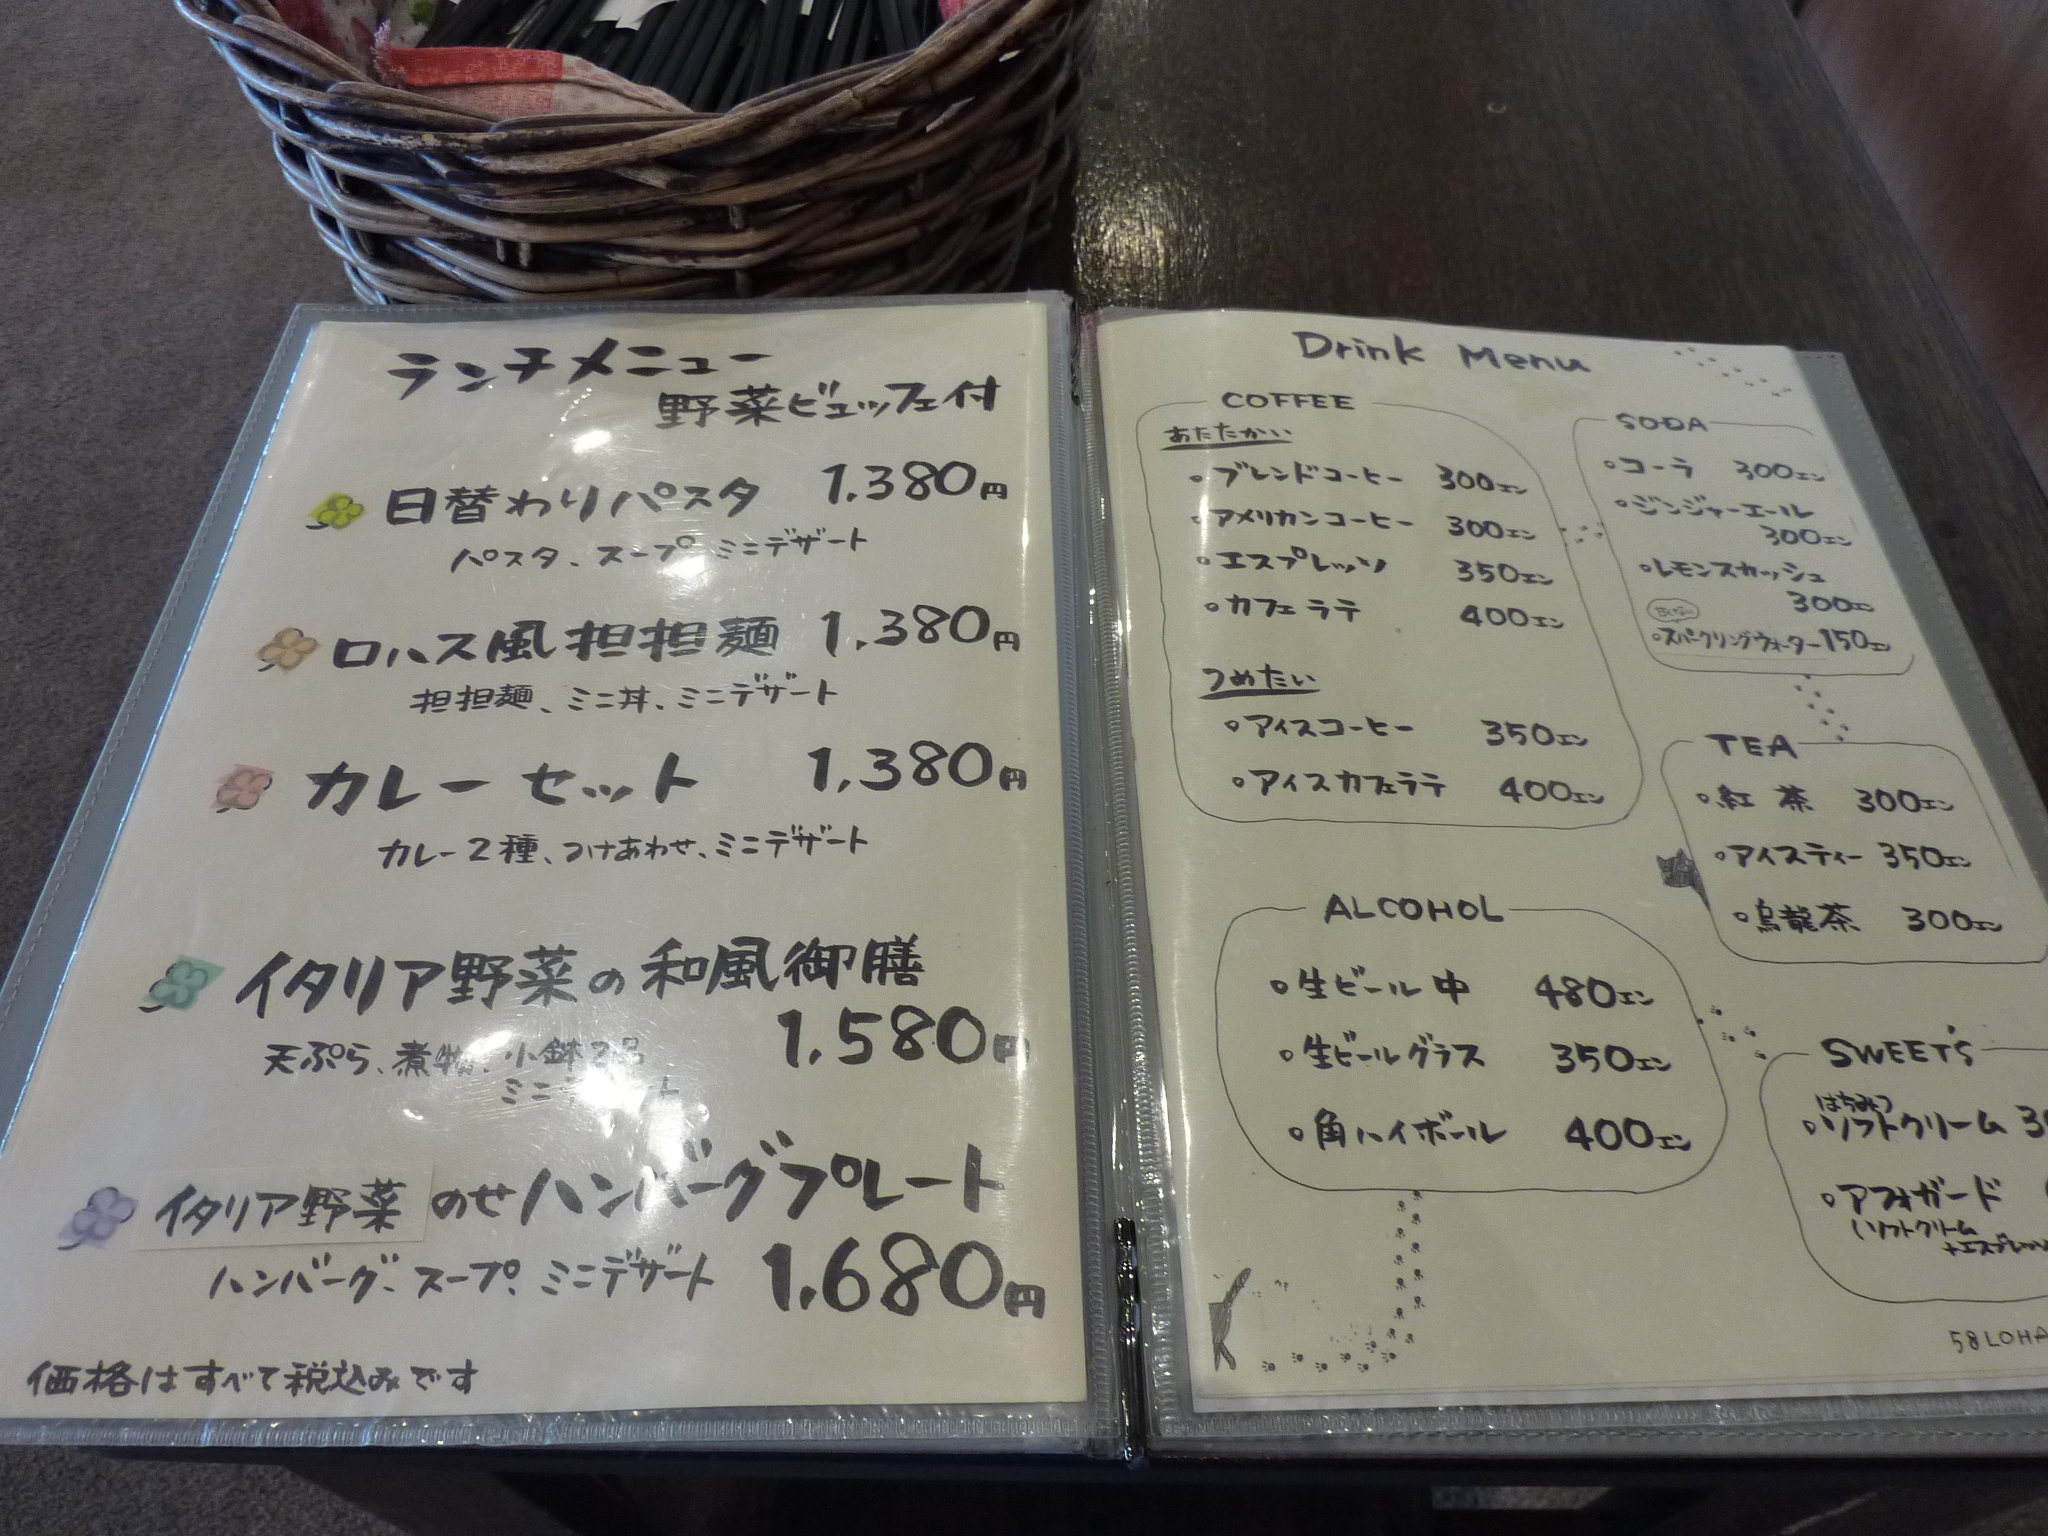 ランチメニュー
野菜ビュッフェ付
日替わりパスタ 1,380円
パスタ、スープ、ミニデザート
ロハス風担担麺 1,380円
担担麺、ミニ丼、ミニデザート
カレーセット 1,380円
カレー2種、つけあわせ、ミニデザート
イタリア野菜の和風御膳
1,580円
天ぷら、煮物、小鉢
ミニデザート
イタリア野菜のせハンバーグプレート
ハンバーグ、スープ、ミニデザート 1,680円
価格はすべて税込みです
Drink Menu
COFFEE
あたたかい
ブレンドコーヒー 300エン
アメリカンコーヒー 300エン
エスプレッソ 350エン
カフェラテ 400エン
つめたい
アイスコーヒー 350エン
アイスカフェラテ 400エン
SODA
コーラ 300エン
ジンジャーエール
300エン
レモンスカッシュ
300エン
スパークリングウォーター 150エン
TEA
紅茶 300エン
アイスティー 350エン
烏龍茶 300エン
ALCOHOL
生ビール中 480エン
生ビールグラス 350エン
角ハイボール 400エン
SWEET'S
はちみつ
ソフトクリーム
アフォガード
(ソフトクリーム
+エスプレッソ
58LOHA